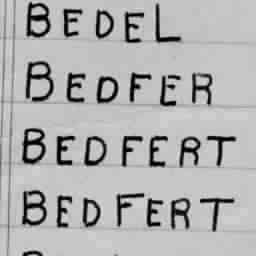 BEDEL
BEDFER
BEDFERT
BEDFERT